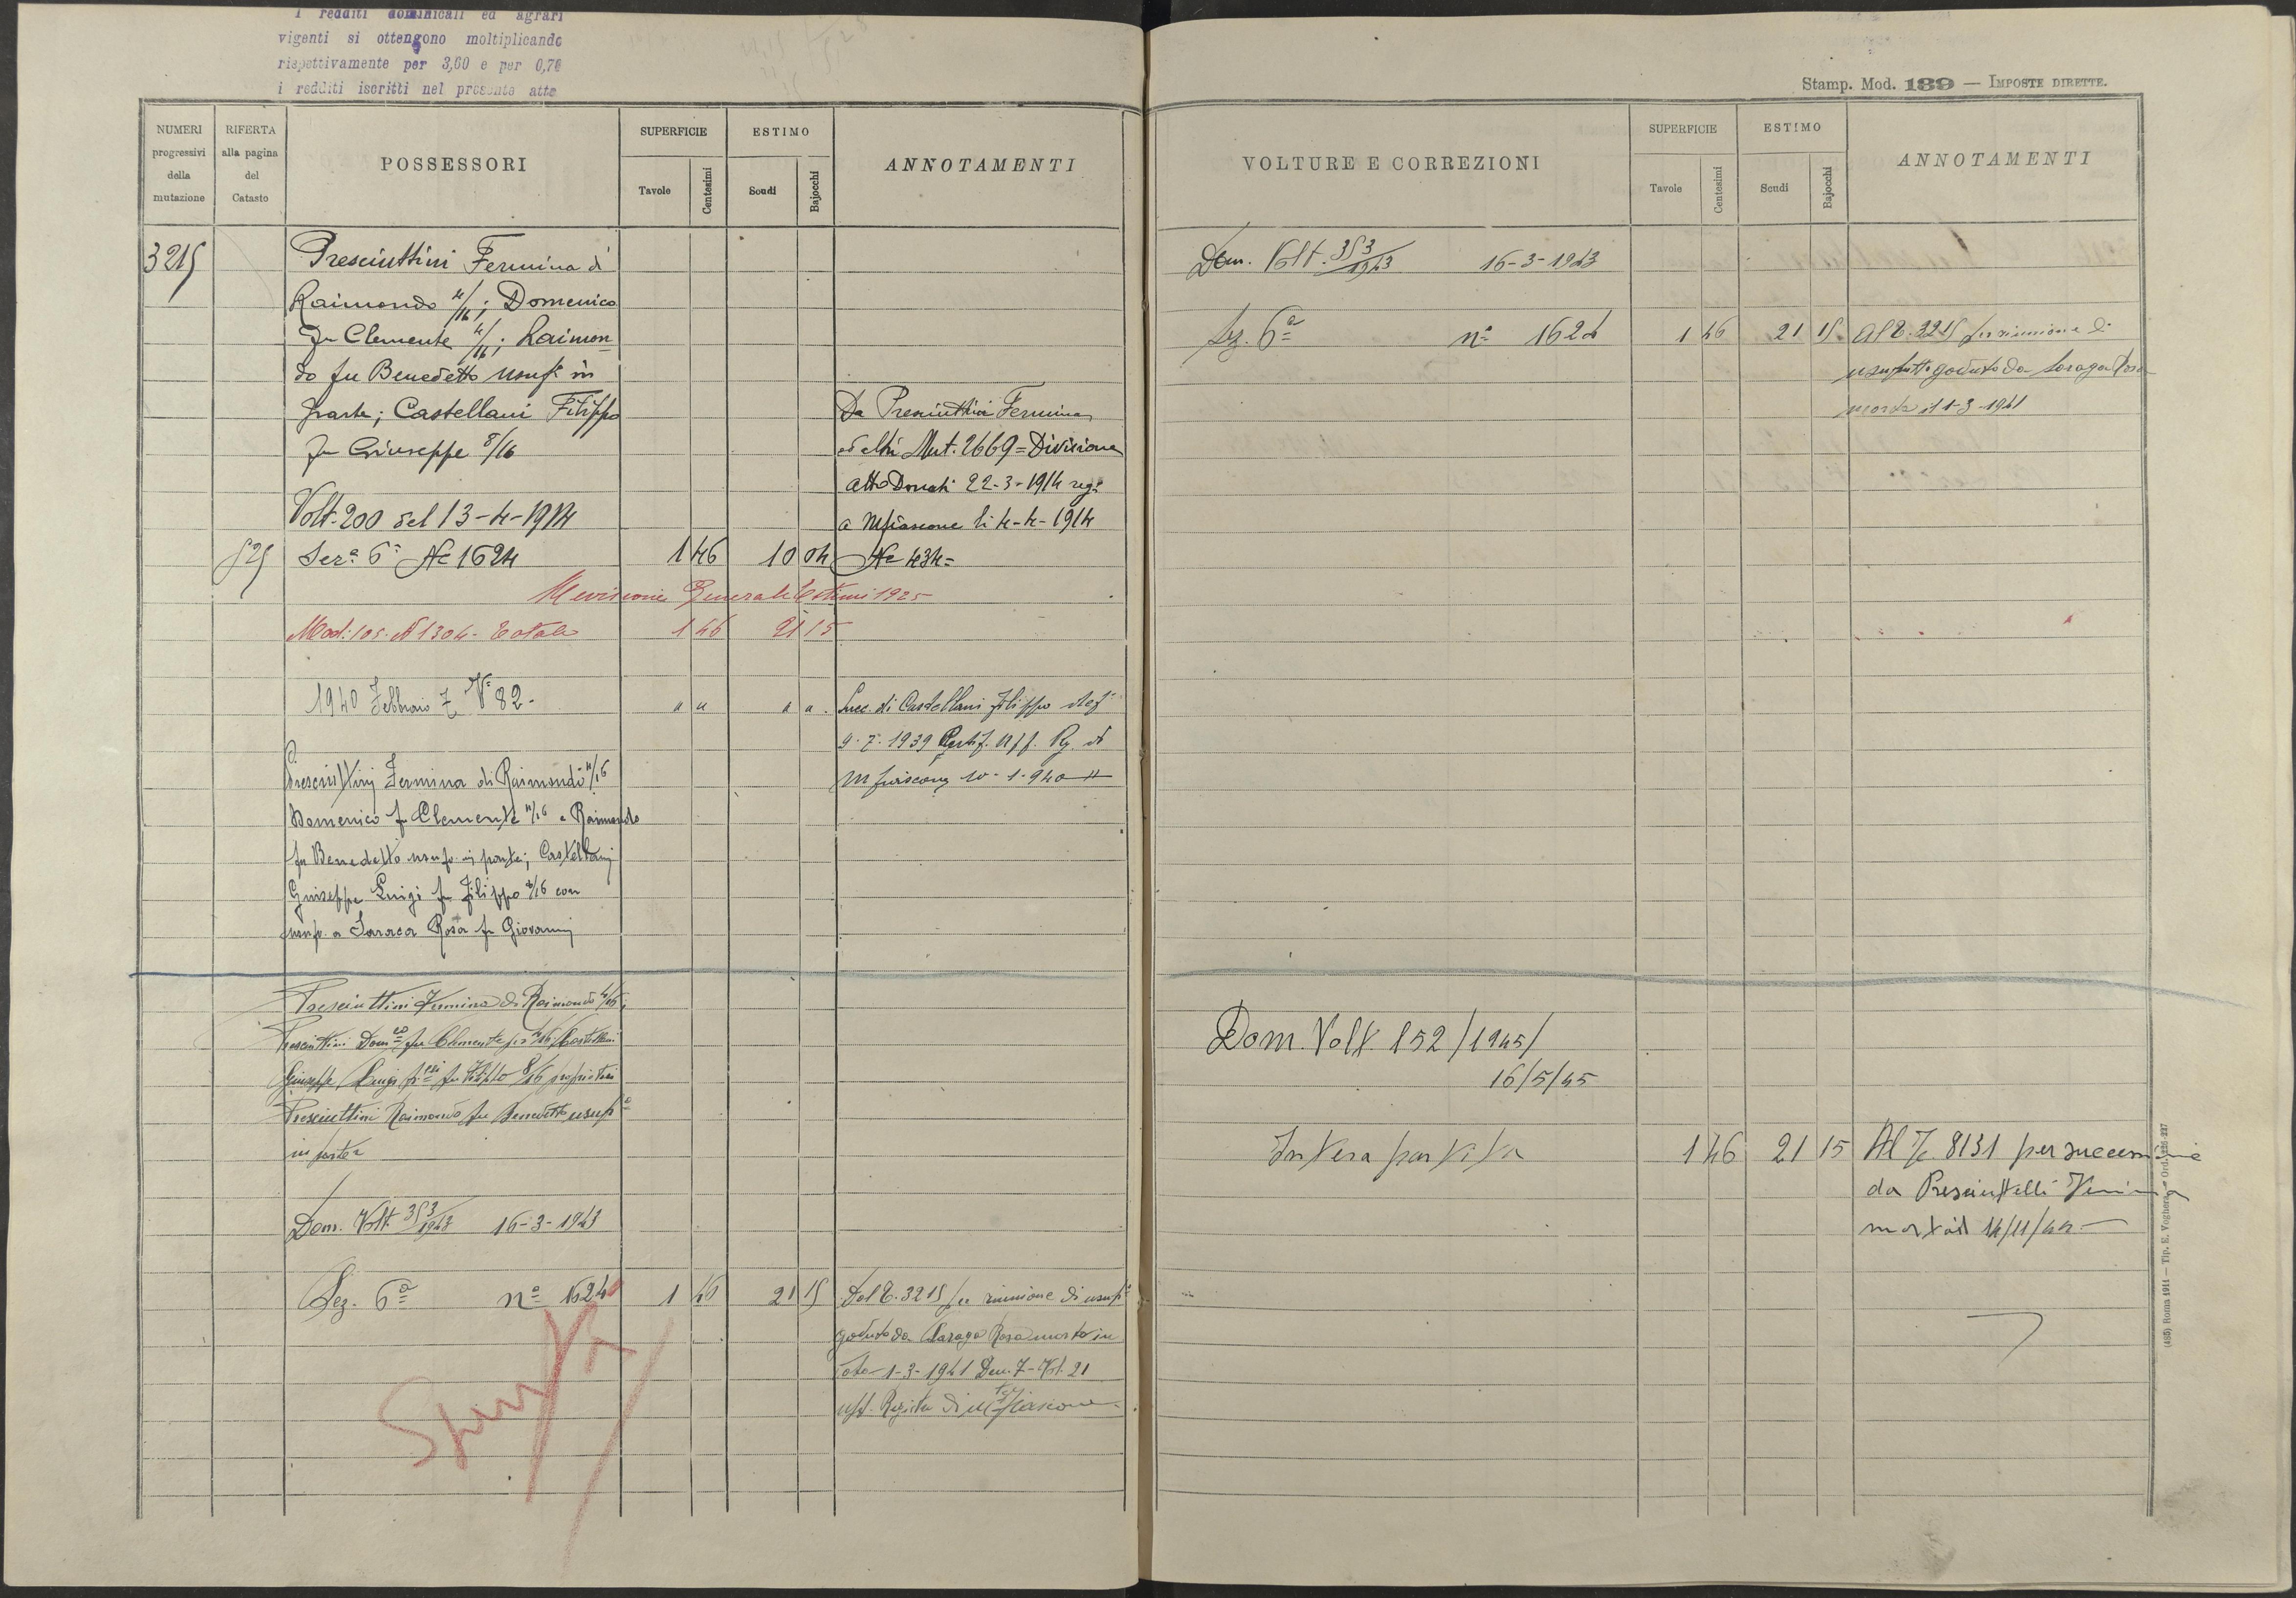 I redditi dominicali ed agrari
vigenti si ottengono moltiplicando
rispettivamente per 3,60 e per 0,70
i redditi iscritti nel presente atto
NUMERI progressivi della mutazione
RIFERTA alla pagina del Catasto
POSSESSORI
SUPERFICIE
Tavole
Centesimi
ESTIMO
Scudi
Bajocchi
ANNOTAMENTI
3215
Presciuttini Fermina di
Raimondo 4/16; Domenico
fu Clemente 4/16; Raimon
do fu Benedetto usuf. in
parte; Castellani Filippo
fu Giuseppe 8/16
Da Presciuttini Fermina
ed altri Mut. 2669 = Divisione
atto Donati 22-3-1914 reg.
a Mfiascone li 4-4-1914
Volt. 200 del 13-4-1914
525 Sez.e 6a No 1624 1 46 10 04 No 434=
Revisione Generale Estimi 1925
Mod: 105. N 1304. Totale 1 46 21 15
1940 Febbraio 7 No 82. " " " " Succ. di Castellani Filippo
9.7.1939 Certif. Uff. Rg. di
Mfiascone 10-1-940
Presciuttini Fermina di Raimondo 4/16
Domenico fu Clemente 4/16 e Raimondo
fu Benedetto usuf. in parte; Castellani
Giuseppe Luigi fu Filippo 8/16 con
usuf. a Saraca Rosa fu Giovanni
Presciuttini Fermina di Raimondo 4/16;
Presciuttini Dom.co fu Clemente per 4/16; Castellani
Giuseppe Luigi fu Filippo 8/16 proprietari
Presciuttini Raimondo fu Benedetto usuf.o
in parte
Dom. Volt. 353/1943 16-3-1943
Sez. 6a no 1624 1 46 21 15 Dal T. 3215 per riunione di usuf.o
goduto da Saraga Rosa morta in
data 1-3-1941 Den. 7 - Vol. 21
uff. Registro di M.Fiascone
Stamp. Mod. 189 — IMPOSTE DIRETTE.
VOLTURE E CORREZIONI
SUPERFICIE
Tavole
Centesimi
ESTIMO
Scudi
Bajocchi
ANNOTAMENTI
Dom. Volt. 353/1943 16-3-1943
Sez. 6a no 1624 1 46 21 15 Al T. 3215 per riunione di
usufrutto goduto da Saraga Rosa
morta il 1-3-1941
Dom. Volt. 152/1945/
16/5/45
Intera partita 1 46 21 15 Al T. 8131 per successione
da Presciuttelli
morta il 14/11/44
(485) Roma 1911 — Tip. E. Voghera